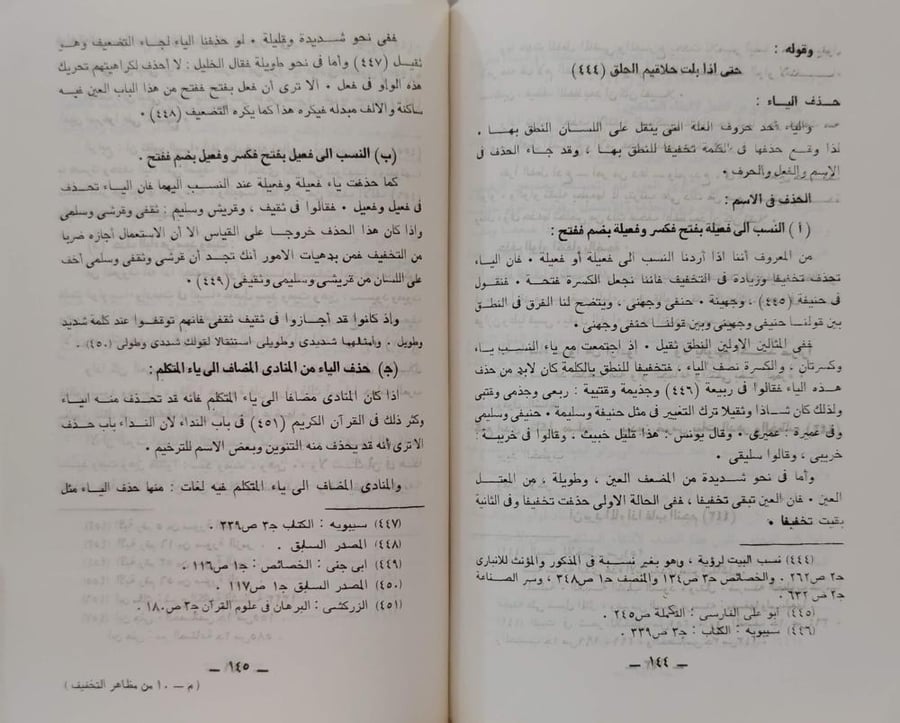 وقوله :
حتى اذا بلت حلاقيم الحلق (٤٤٤)
حذف الياء :
والياء أحد حروف العلة التى يثقل على اللسان النطق بهـا ٠
لذا وقـع حذفها فى الكلمة تخفيفا للنطق بهـا ، وقد جاء الحذف فى
الاسم والفعل والحرف ٠
الحذف فى الاسم :
( أ ) النسب الى فعيلة بفتح فكسر وفعيلة بضم ففتح :
من المعروف أننا اذا أردنا النسب الى فعيلة أو فعيلة ٠ فان اليـاء
تحذف تخفيفا وزيادة فى التخفيف فاننا نجعل الكسرة فتحـة ٠ فنقول
فى حنيفة (٤٤٥) ، وجهينة ٠ حنفى وجهنى ، ويتضح لنا الفرق فى النطق
بين قولنـا حنيفى وجهينى وبين قولنـا حنفى وجهنى ٠
ففى المثالين الاولين النطق ثقيل ٠ اذ اجتمعت مع ياء النسب يـاء
وكسرتان ٠ والكسرة نصف الياء ٠ فتخفيفا للنطق بالكلمة كان لابد من حذف
هـذه اليـاء فقالوا فى ربيعة (٤٤٦) وجذيمة وقتيبة : ربعى وجذمى وقتبى
ولذلك كان شـاذا وثقيلا ترك التغيير فى مثل حنيفة وسليمة ٠ حنيفى وسليمى
وفى عميرة : عميرى ٠ وقال يونس : هذا قليل خبيث ٠ وقالوا فى خريبة :
خريبى ، وقالوا سليقى ٠
وأما فى نحو شديدة من المضعف العين ، وطويلة ، من المعتـل
العين ٠ فان العين تبقى تخفيفا ، ففى الحالة الاولى حذفت تخفيفا وفى الثانية
بقيت تخفيفا ٠
(٤٤٤) نسب البيت لرؤبة ، وهو بغير نسـبة فى المذكور والمؤنث للانبارى
ج٢ ص٢٦٢ ٠ والخصائص ج٣ ص١٣٤ والمنصف ج١ ص٣٤٨ ، وسر الصناعة
ج٢ ص٦٣٢ ٠
(٤٤٥) ابو على الفارسى : التكملة ص٢٤٥ ٠
(٤٤٦) سيبويه : الكتاب : ج٣ ص٣٣٩ ٠
— ١٤٤ —
ففى نحو شـديدة وقليلة ٠ لو حذفنا الياء لجاء التضعيف وهـو
ثقيـل (٤٤٧) وأما فى نحو طويلة فقال الخليل : لا احذف لكراهيتهم تحريك
هذه الواو فى فعل ٠ ألا ترى أن فعل بفتح ففتح من هذا الباب العين فيـه
ساكنة والالف مبدله فيكره هذا كما يكره التضعيف (٤٤٨) ٠
(ب) النسب الى فعيل بفتح فكسر وفعيل بضم ففتح ٠
كما حذفت ياء فعيلة وفعيلة عند النسـب اليهما فان اليـاء تحـذف
فى فعيل وفعيل ٠ فقالوا فى ثقيف ، وقريش وسليم : ثقفى وقرشى وسلمى
واذا كان هذا الحذف خروجـا على القياس الا أن الاستعمال أجازه ضربا
من التخفيف فمن بدهيات الامور أنك تجـد أن قرشى وثقفى وسلمى أخف
على اللسان من قريشى وسليمى وثقيفى (٤٤٩) ٠
واذ كانوا قد أجـازوا فى ثقيف ثقفى فانهم توقفوا عند كلمة شديد
وطويل ٠ وأمثالهـا شديدى وطويلى استثقالا لقولك شددى وطولى (٤٥٠) ٠
(ج) حذف الياء من المنادى المضاف الى ياء المتكلم :
اذا كان المنادى مضافا الى ياء المتكلم فانه قد تحـذف منه اليـاء
وكثر ذلك فى القرآن الكريم (٤٥١) فى باب النداء لان النـداء باب حـذف
ألا ترى أنه قد يحذف منه التنوين وبعض الاسم للترخيم ٠
والمنادى المضاف الى يـاء المتكلم فيه لغات : منها حذف اليـاء مثل
(٤٤٧) سيبويه : الكتاب ج٣ ص٣٣٩ ٠
(٤٤٨) المصدر السابق ٠
(٤٤٩) ابى جنى : الخصائص : ج١ ص١١٦ ٠
(٤٥٠) المصدر السابق ج١ ص١١٧ ٠
(٤٥١) الزركشى : البرهان فى علوم القرآن ج٣ ص١٨٠ ٠
— ١٤٥ —
( م — ١٠ من مظاهر التخفيف )